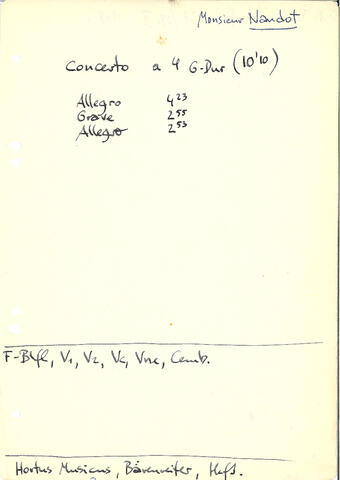 Monsieur Nandot
Concerto a 4 G-Dur (10'10)
Allegro 4 23
Grave 2 55
Allegro 2 53
F-Blfl, V1, V2, Vc, Vne, Cemb.
Hortus Musicus, Bärenreiter, Heft.